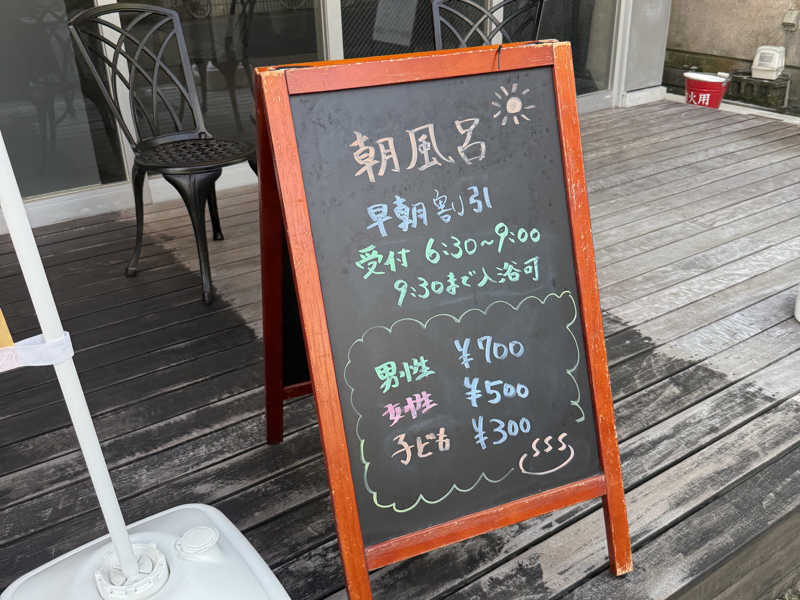 朝風呂
早朝割引
受付 6:30~9:00
9:30まで入浴可
男性 ¥700
女性 ¥500
子ども ¥300
火用